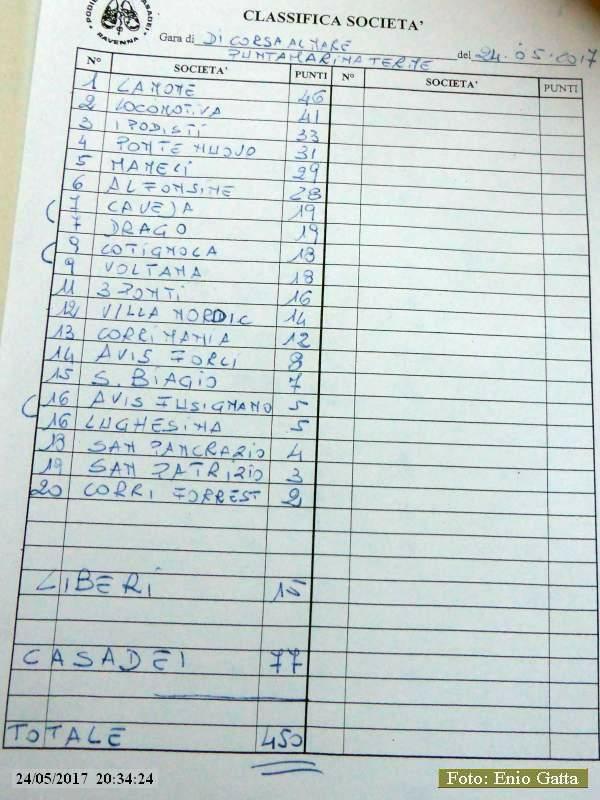 PODI CASADEI
RAVENNA
CLASSIFICA SOCIETA'
Gara di DI CORSA AL MARE
PUNTAMARINA TERME del 24.05.2017
N° SOCIETA' PUNTI N° SOCIETA' PUNTI
1 LAMONE 46
2 LOCOMOTIVA 41
3 I PODISTI 33
4 PONTE NUOVO 31
5 MAMELI 29
6 ALFONSINE 28
7 CAVEJA 19
7 DRAGO 19
9 COTIGNOLA 18
9 VOLTANA 18
11 3 PONTI 16
12 VILLA NORDIC 14
13 CORRIMANIA 12
14 AVIS FORLI 8
15 S. BIAGIO 7
16 AVIS FUSIGNANO 5
16 LUGHESINA 5
18 SAN PANCRAZIO 4
19 SAN PATRIZIO 3
20 CORRI FORREST 2
LIBERI 15
CASADEI 77
TOTALE 450
24/05/2017 20:34:24
Foto: Enio Gatta